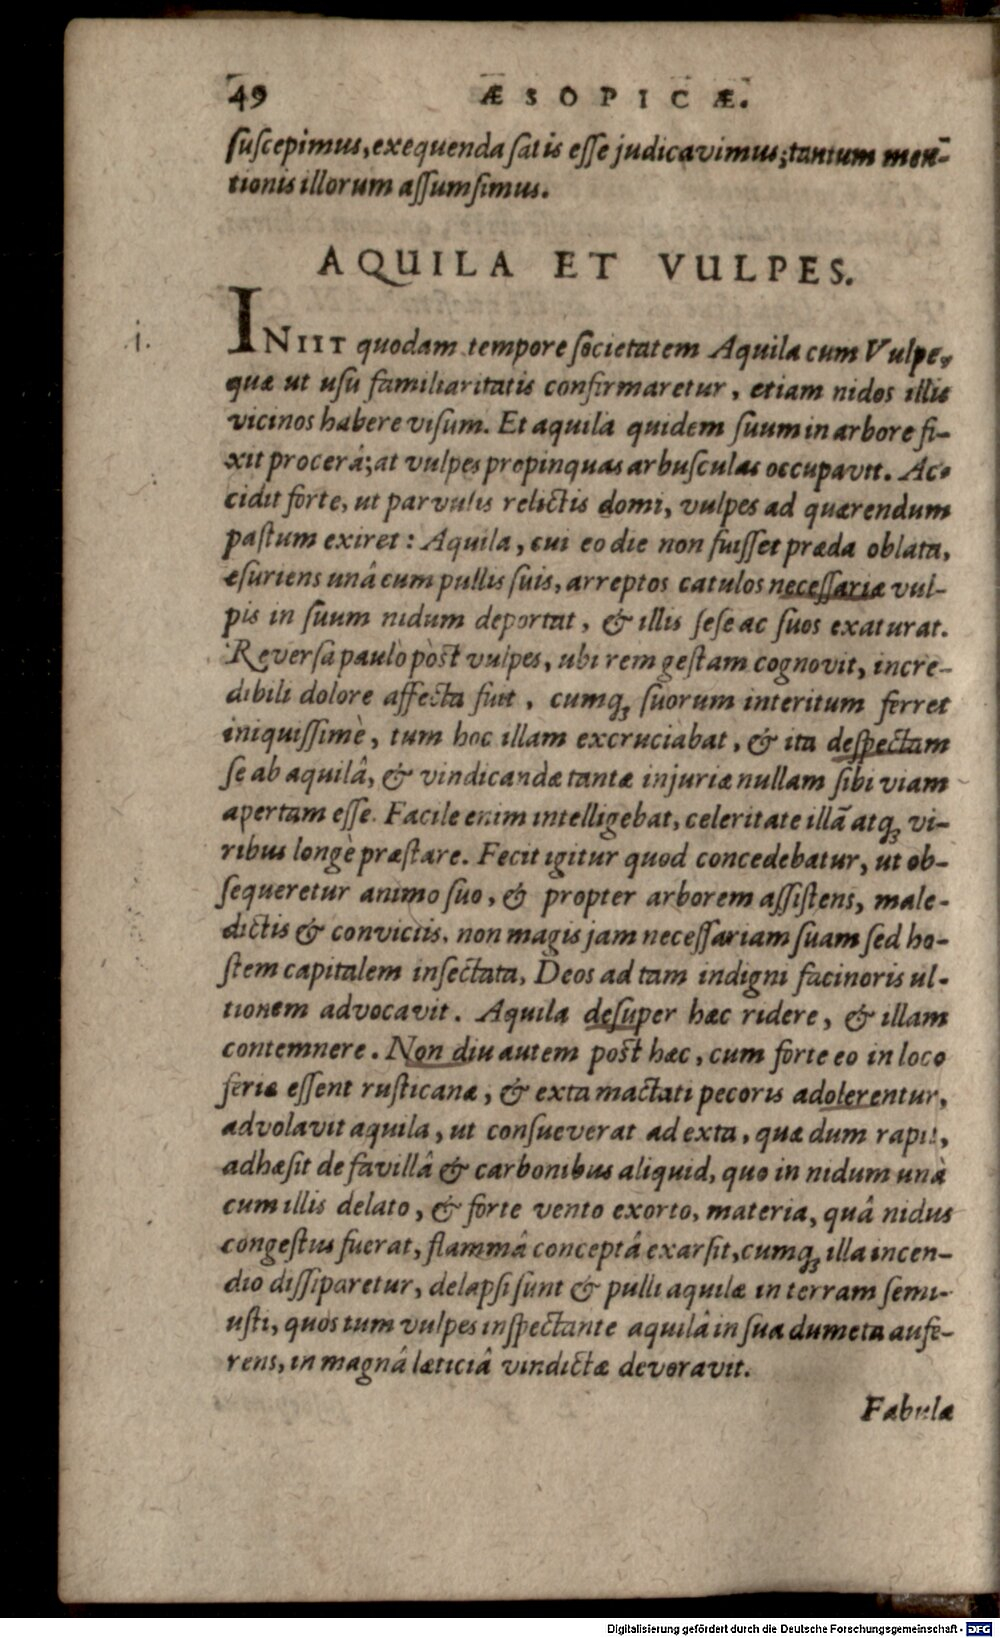 49 ÆSOPICÆ.
ſuſcepimus, exequenda ſatis eſſe judicavimus; tantum men-
tionis illorum aſſumſimus.
AQUILA ET VULPES.
i.
INIIT quodam tempore ſocietatem Aquila cum Vulpe,
quæ ut uſu familiaritatis confirmaretur, etiam nidos illis
vicinos habere viſum. Et aquila quidem ſuum in arbore fi-
xit procerâ; at vulpes propinquas arbuſculas occupavit. Ac-
cidit forte, ut parvulis relictis domi, vulpes ad quærendum
paſtum exiret: Aquila, cui eo die non fuiſſet præda oblata,
eſuriens unâ cum pullis ſuis, arreptos catulos neceſſariæ vul-
pis in ſuum nidum deportat, & illis ſeſe ac ſuos exaturat.
Reverſa paulò pòst vulpes, ubi rem geſtam cognovit, incre-
dibili dolore affecta fuit, cumq; ſuorum interitum ferret
iniquiſſimè, tum hoc illam excruciabat, & ita deſpectam
ſe ab aquilâ, & vindicandæ tantæ injuriæ nullam ſibi viam
apertam eſſe. Facile enim intelligebat, celeritate illã atq; vi-
ribus longè præſtare. Fecit igitur quod concedebatur, ut ob-
ſequeretur animo ſuo, & propter arborem aſſiſtens, male-
dictis & conviciis, non magis jam neceſſariam ſuam ſed ho-
ſtem capitalem inſectata, Deos ad tam indigni facinoris ul-
tionem advocavit. Aquila deſuper hæc ridere, & illam
contemnere. Non diu autem poſt hæc, cum forte eo in loco
feriæ eſſent ruſticanæ, & exta mactati pecoris adolerentur,
advolavit aquila, ut conſueverat ad exta, quæ dum rapit,
adhæſit de favillâ & carbonibus aliquid, quo in nidum unà
cum illis delato, & forte vento exorto, materia, quâ nidus
congeſtus fuerat, flammâ conceptâ exarſit, cumq; illa incen-
dio diſſiparetur, delapſi ſunt & pulli aquilæ in terram ſemi-
uſti, quos tum vulpes inſpectante aquilâ in ſua dumeta aufe-
rens, in magnâ læticiâ vindictæ devoravit.
Fabulæ
Digitalisierung gefördert durch die Deutsche Forschungsgemeinschaft - DFG